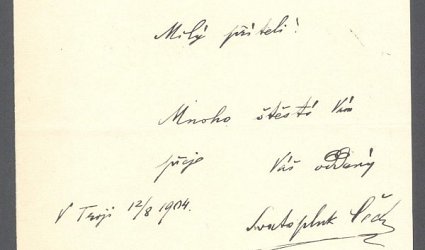 Milý příteli!
Mnoho štěstí Vám
přeje Váš oddaný
V Troji 12/8 1904. Svatopluk Čech